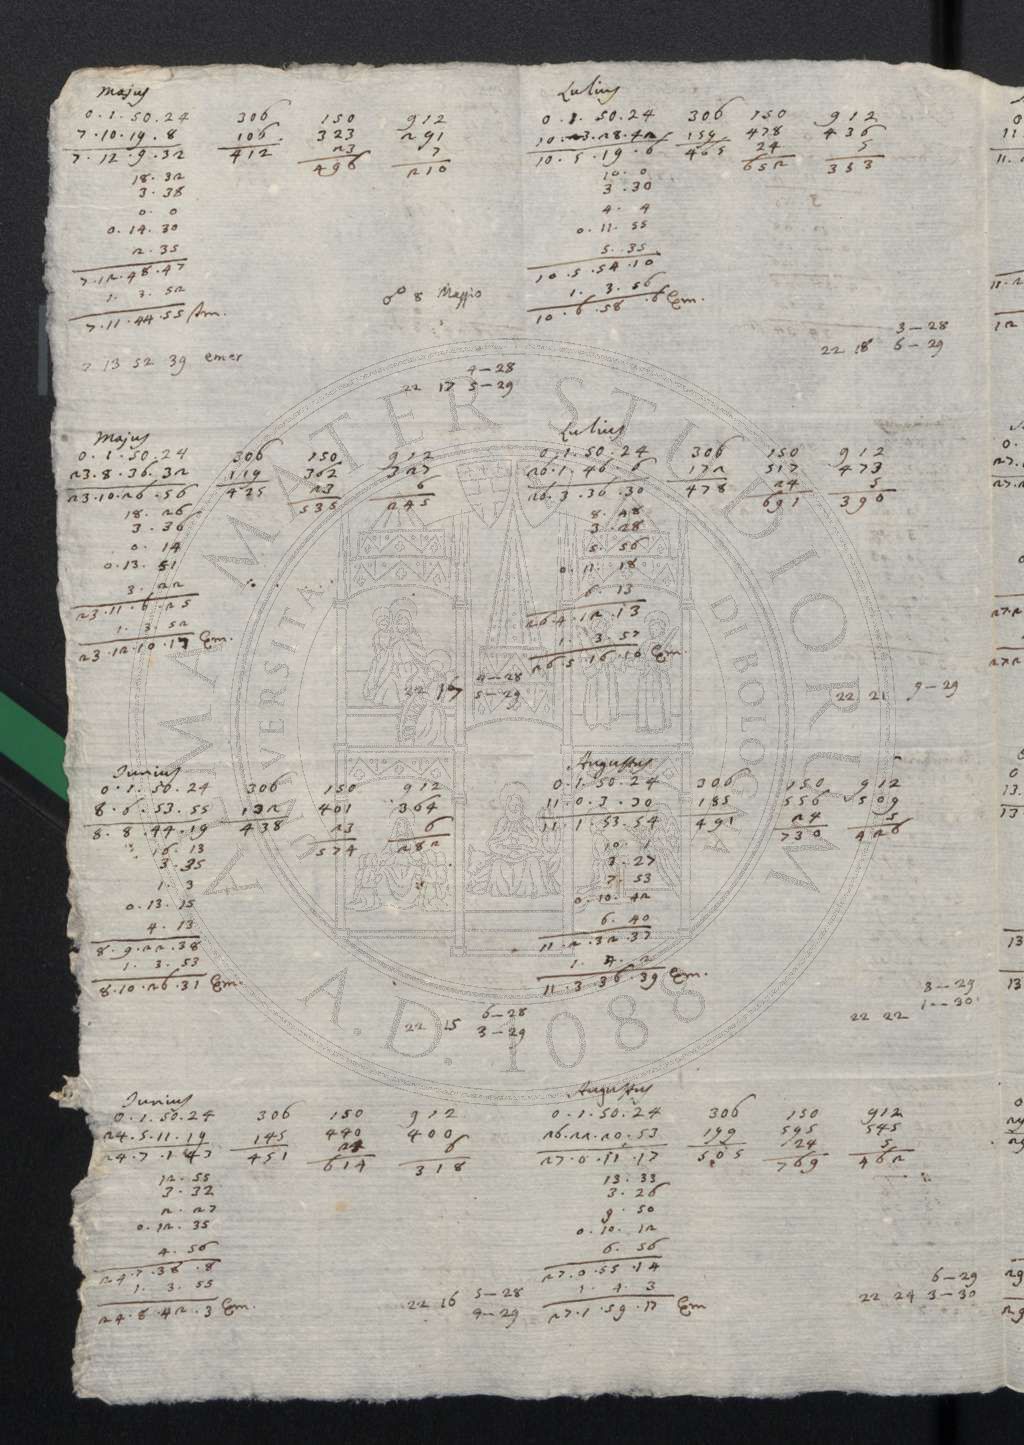 Majus
0.1.50.24 306 150 912
7.10.19.8 106 323 291
7.12.9.32 412 23 7
496 210
18.32
3.38
0.0
0.14.30
2.35
7.12.48.47
1.3.52
7.11.44.55 Im.
7 13 52 39 emer
8 Maggio
4-28
22 17 5-29
Majus
0.1.50.24 306 150 912
23.8.36.32 119 362 327
23.10.26.56 425 23 6
535 245
18.26
3.36
0.14
0.13.51
3.22
23.11.6.25
1.3.52
23.12.10.17 Em.
4-28
22 16 5-29
Junius
0.1.50.24 306 150 912
8.6.53.55 132 401 364
8.8.44.19 438 23 6
574 282
16.13
3.35
1.3
0.13.15
4.13
8.9.22.38
1.3.53
8.10.26.31 Em.
6-28
22 15 3-29
Junius
0.1.50.24 306 150 912
24.5.11.19 145 440 400
24.7.1.43 451 24 6
614 318
12.55
3.32
2.27
0.12.35
4.56
24.7.38.8
1.3.55
24.8.42.3 Em.
5-28
22 16 9-29
Lulius
0.1.50.24 306 150 912
10.3.28.42 159 478 436
10.5.19.6 465 24 5
652 353
10.0
3.30
4.4
0.11.55
5.35
10.5.54.10
1.3.56
10.6.58.6 Em.
3-28
22 18 6-29
Lulius
0.1.50.24 306 150 912
26.1.46.6 172 517 473
26.3.36.30 478 24 5
691 390
8.48
3.28
5.56
0.11.18
6.13
26.4.12.13
1.3.57
26.5.16.10 Em.
22 21 9-29
Augustus
0.1.50.24 306 150 912
11.0.3.30 185 556 509
11.1.53.54 491 24 5
730 426
10.1
3.27
7.53
0.10.42
6.40
11.2.32.37
1.4.2
11.3.36.39 Em.
3-29
1-30
22 22
Augustus
0.1.50.24 306 150 912
26.22.20.53 199 595 545
27.0.11.17 505 24 5
769 462
13.33
3.26
9.50
0.10.12
6.56
27.0.55.14
1.4.3
27.1.59.17 Em
6-29
22 24 3-30
ALMA MATER STUDIORUM
UNIVERSITÀ DI BOLOGNA
A.D. 1088